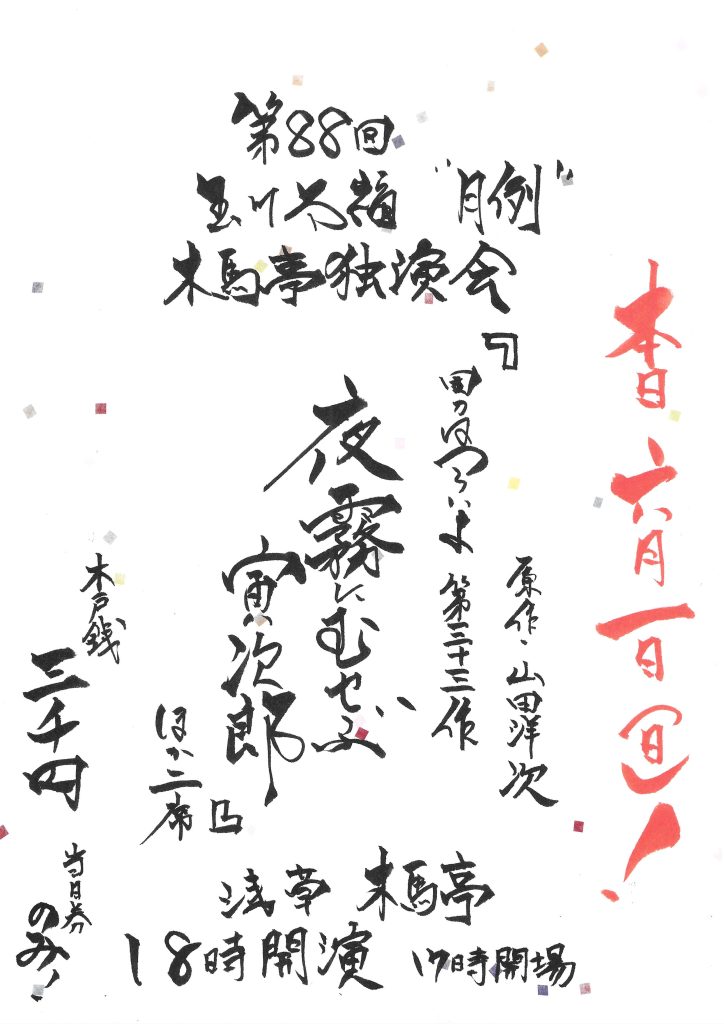 第88回
玉川太福 "月例"
木馬亭独演会
本日 六月一日(日)!
原作・山田洋次
『男はつらいよ 第三十三作
夜霧にむせぶ
寅次郎』
ほか二席
木戸銭
三千円
当日券
のみ!
浅草 木馬亭
18時開演 17時開場